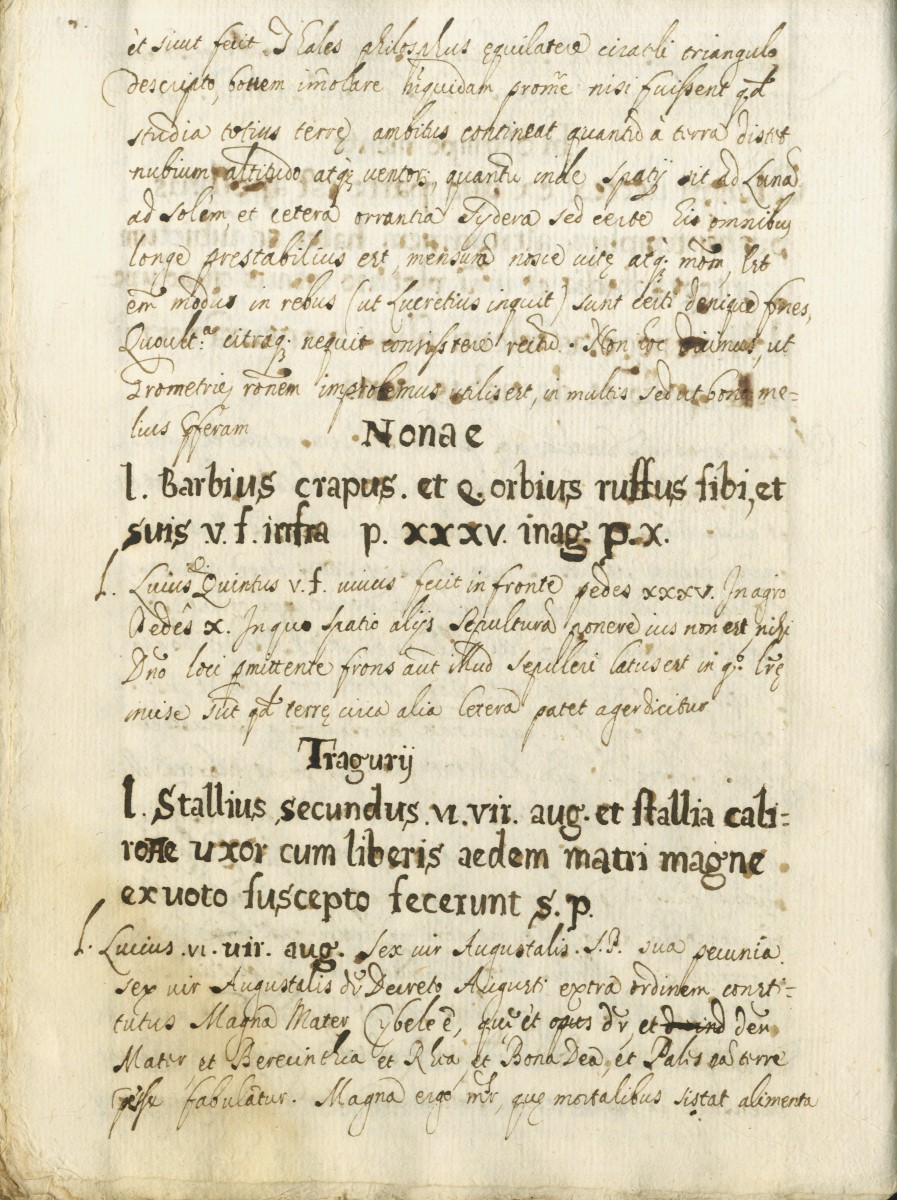 et sicut fecit Thales philosophus ęquilatere circuli triangulo
descripto, bovem imolare hiquidam prome nisi fuissent qd
studia totius terrę ambitus contineat quantũ à terra distet
nubium altitudo atq; ventor, quantũ inde spatij sit ad Lunã
ad solem, et cetera errantia sydera sed certe his omnibus
longe prestabilius est, mensurã nosce vitę atq; Est
em modus in rebus (ut Lucretius inquit) sunt certi denique fines,
citraq; nequit consistere rectũ. Non hoc dicimus, ut
Geometrię ronem improbemus utilis est, in multis sed ut bono me-
lius
Nonae
l. Barbius crapus. et Q. orbius ruffus sibi, et
suis v. f. infra p. xxxv. inag. p. x.
l. Lucius Q. Quintus v. f. vivus fecit in fronte pedes xxxv. In agro
Pedes x. In quo spatio alijs sepulturã ponere ius non est nisi
Dño loci pmittente frons aut illud sepulleri latus est in
qd terrę circa alia letera patet ager dicitur
Tragurij
l. Stallius secundus .vi. vir. aug. et stallia cali-
roae uxor cum liberis aedem matri magne
ex voto suscepto fecerunt s. p.
l. Lucius .vi. vir. aug. sex vir Augustalis. S.P. sua pecunia.
sex vir Augustalis dr Decreto Augusti extra ordinem consti-
tutus Magna Mater Cybele ẽ, quę et opis dr, et deũ
Mater et Berecinthia et Rhea, et Bona Dea, et Palis terre
fabulatur. Magna ergo mr, quę mortalibus sistat alimenta